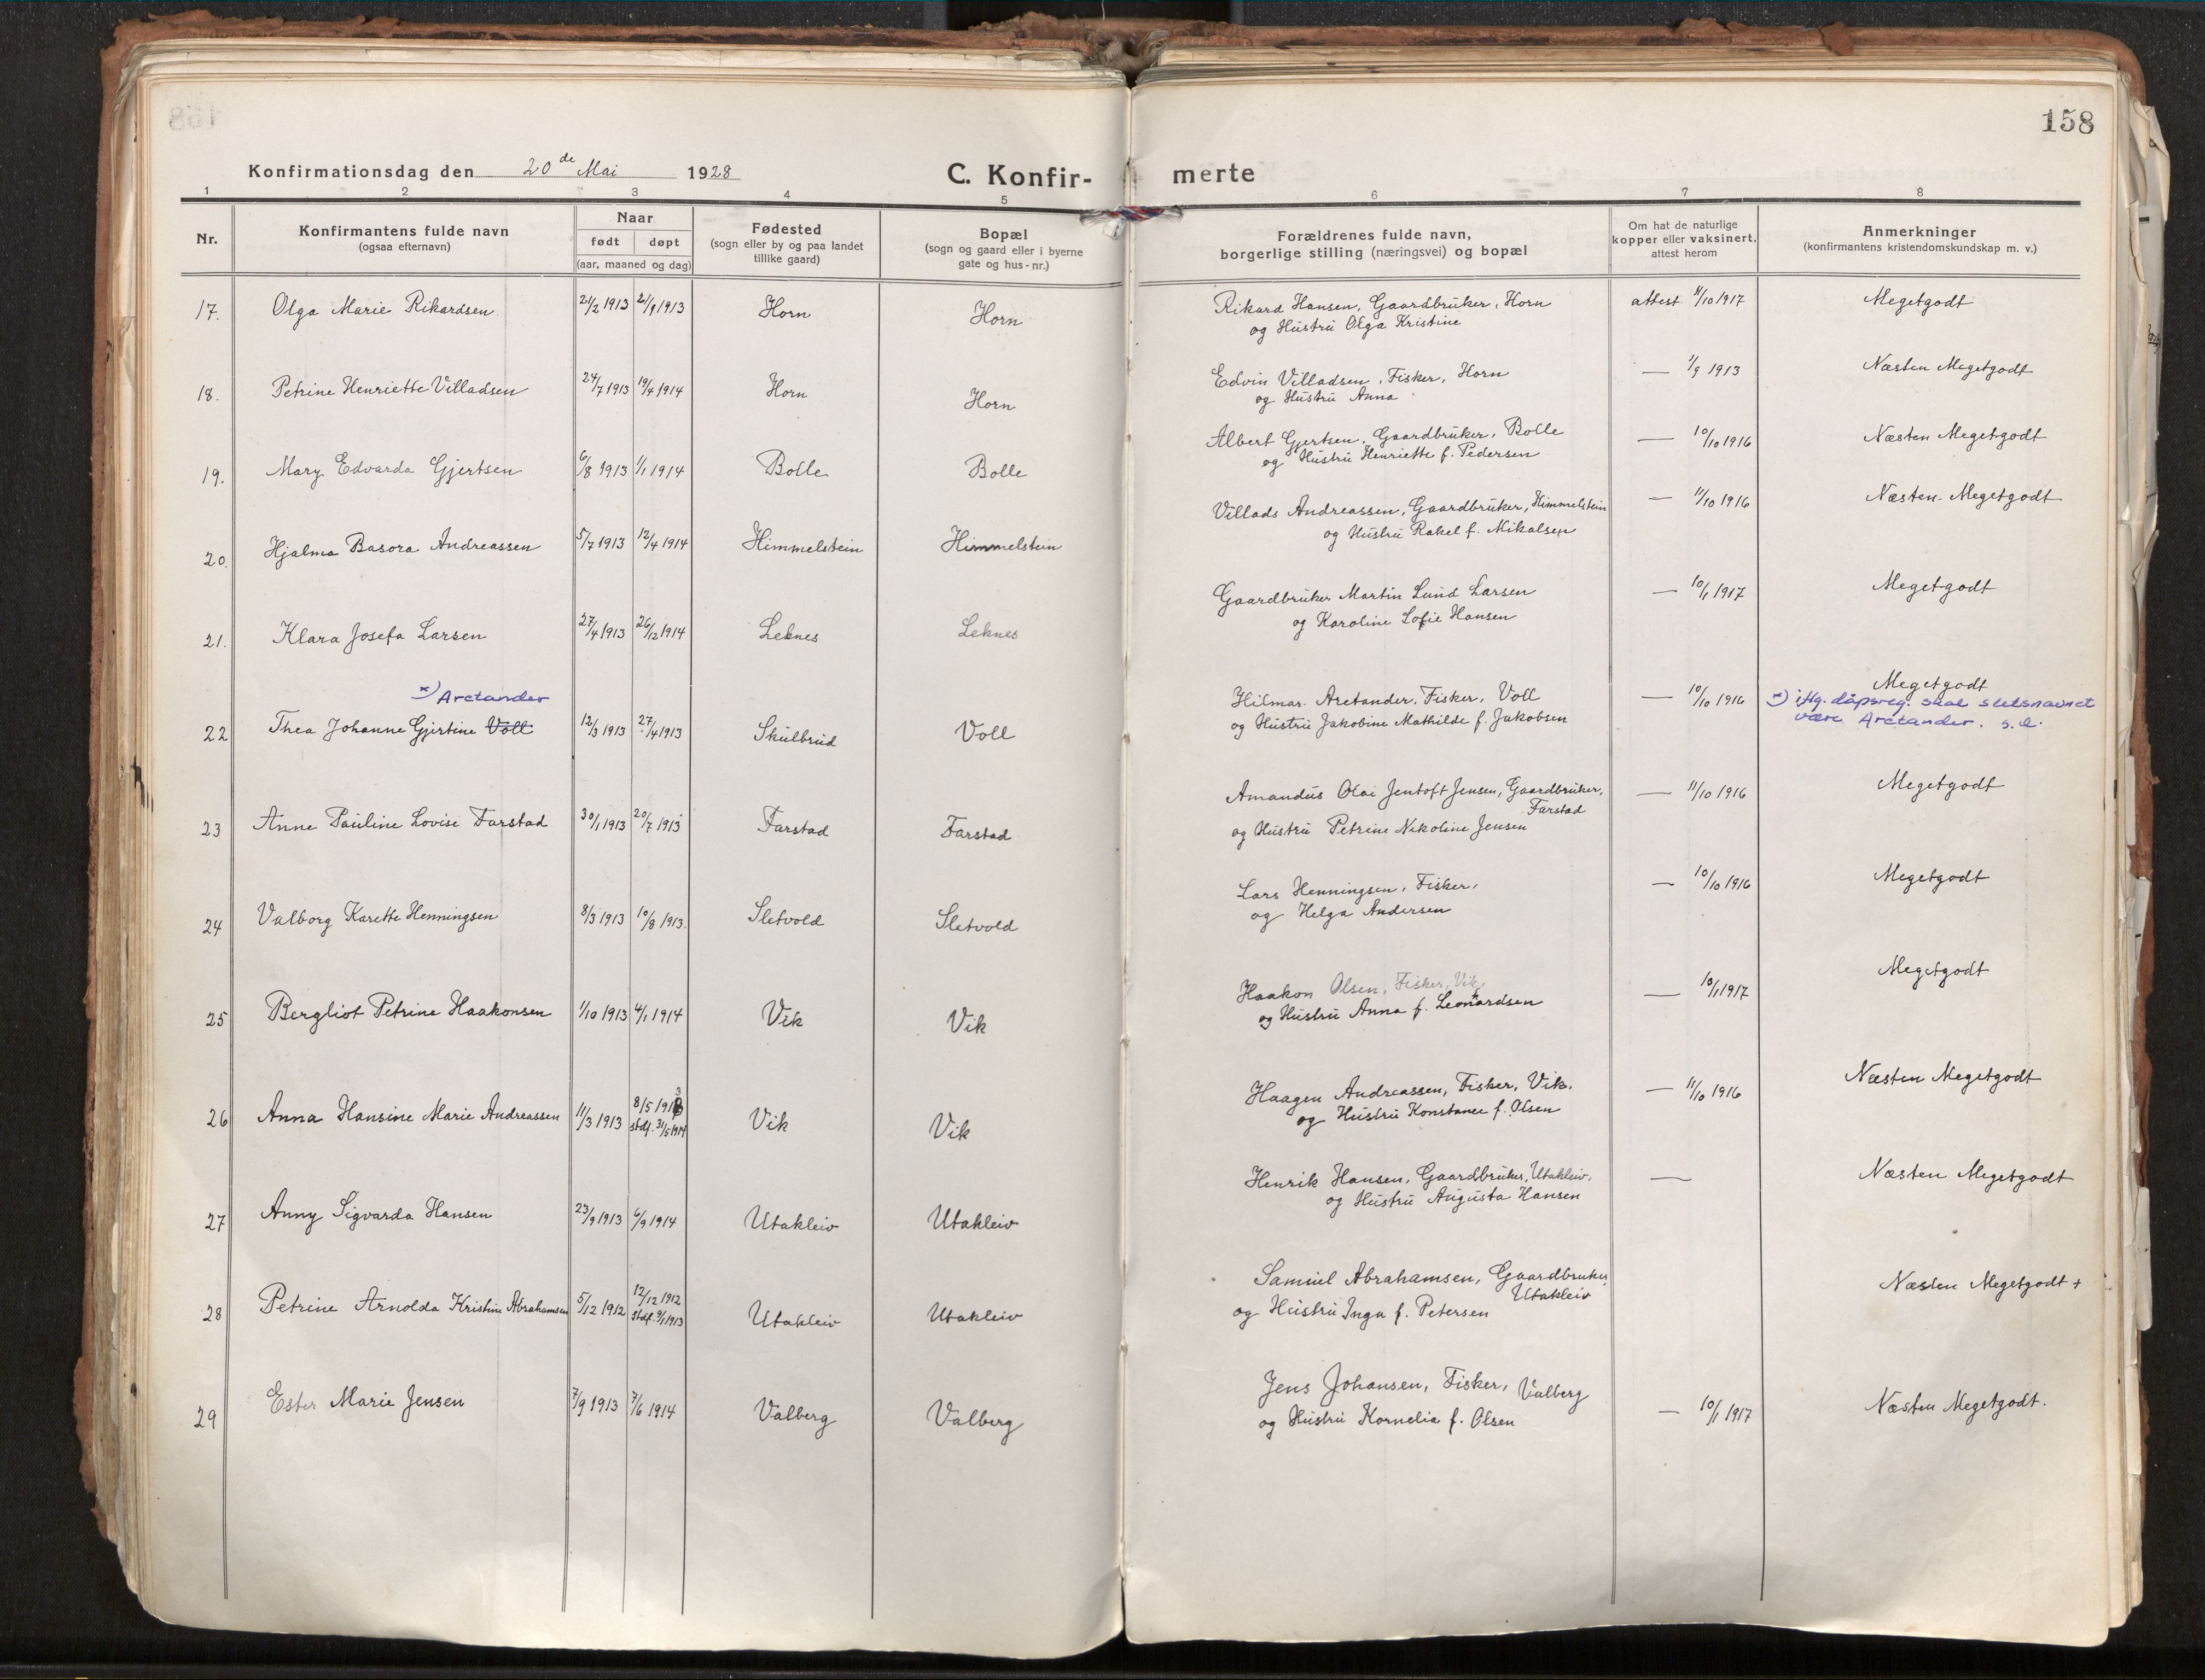 158
Konfirmationsdag den 20de Mai 1928
C. Konfir- merte
1 2 3 4 5 6 7 8
Nr.
Konfirmantens fulde navn
(ogsaa efternavn)
Naar
født døpt
(aar, maaned og dag)
Fødested
(sogn eller by og paa landet
tillike gaard)
Bopæl
(sogn og gaard eller i byerne
gate og hus-nr.)
Forældrenes fulde navn,
borgerlige stilling (næringsvei) og bopæl
Om hat de naturlige
kopper eller vaksinert,
attest herom
Anmerkninger
(konfirmantens kristendomskundskap m. v.)
17. Olga Marie Rikardsen 21/2 1913 21/9 1913 Horn Horn Rikard Hansen, Gaardbruker, Horn attest 11/10 1917 Megetgodt
og Hustru Olga Kristine
18. Petrine Henriette Villadsen 24/7 1913 19/4 1914 Horn Horn Edvin Villadsen, Fisker, Horn — 1/9 1913 Næsten Megetgodt
og Hustru Anna
19. Mary Edvarda Gjertsen 6/8 1913 1/1 1914 Bolle Bolle Albert Gjertsen, Gaardbruker, Bolle — 10/10 1916 Næsten Megetgodt
og Hustru Henriette f. Pedersen
20. Hjalma Basora Andreassen 5/7 1913 12/4 1914 Himmelstein Himmelstein Villads Andreassen, Gaardbruker, Himmelstein — 11/10 1916 Næsten Megetgodt
og Hustru Rakel f. Mikalsen
21. Klara Josefa Larsen 27/4 1913 26/12 1914 Leknes Leknes Gaardbruker Martin Lund Larsen — 10/1 1917 Megetgodt
og Karoline Sofie Hansen
x) Arctander
22 Thea Johanne Gjertine Voll 12/3 1913 27/4 1913 Skulbrud Voll Hilmar Arctander, Fisker, Voll — 10/10 1916 Megetgodt
og Hustru Jakobine Mathilde f. Jakobsen
x) iflg. dåpsreg. skal sletsnavnet
være Arctander. s.l.
23 Anne Pauline Lovise Farstad 30/1 1913 20/7 1913 Farstad Farstad Amandus Olai Jentoft Jensen, Gaardbruker, — 11/10 1916 Megetgodt
Farstad
og Hustru Petrine Nikoline Jensen
24 Valborg Karette Henningsen 8/3 1913 10/8 1913. Sletvold Sletvold Lars Henningsen, Fisker, — 10/10 1916 Megetgodt
og Helga Andersen
25 Bergliot Petrine Haakonsen 1/10 1913 4/1 1914 Vik Vik Haakon Olsen, Fisker, Vik, — 10/1 1917 Megetgodt
og Hustru Anna f. Leonardsen
26 Anna Hansine Marie Andreassen 11/3 1913 8/5 1913 Vik Vik Haagen Andreassen, Fisker, Vik. — 11/10 1916 Næsten Megetgodt
stdf. 31/5 1914 og Hustru Konstance f. Olsen
27 Anny Sigvarda Hansen 23/9 1913 6/9 1914 Utakleiv Utakleiv Henrik Hansen, Gaardbruker, Utakleiv, — Næsten Megetgodt
og Hustru Augusta Hansen
28 Petrine Arnolda Kristine Abrahamsen 5/12 1912 12/12 1912 Utakleiv Utakleiv Samuel Abrahamsen, Gaardbruker, Næsten Megetgodt +
stdf. 9/1 1913 Utakleiv
og Hustru Inga f. Petersen
29 Ester Marie Jensen 7/9 1913 7/6 1914 Valberg Valberg Jens Johansen, Fisker, Valberg — 10/1 1917 Næsten Megetgodt.
og Hustru Kornelia f. Olsen